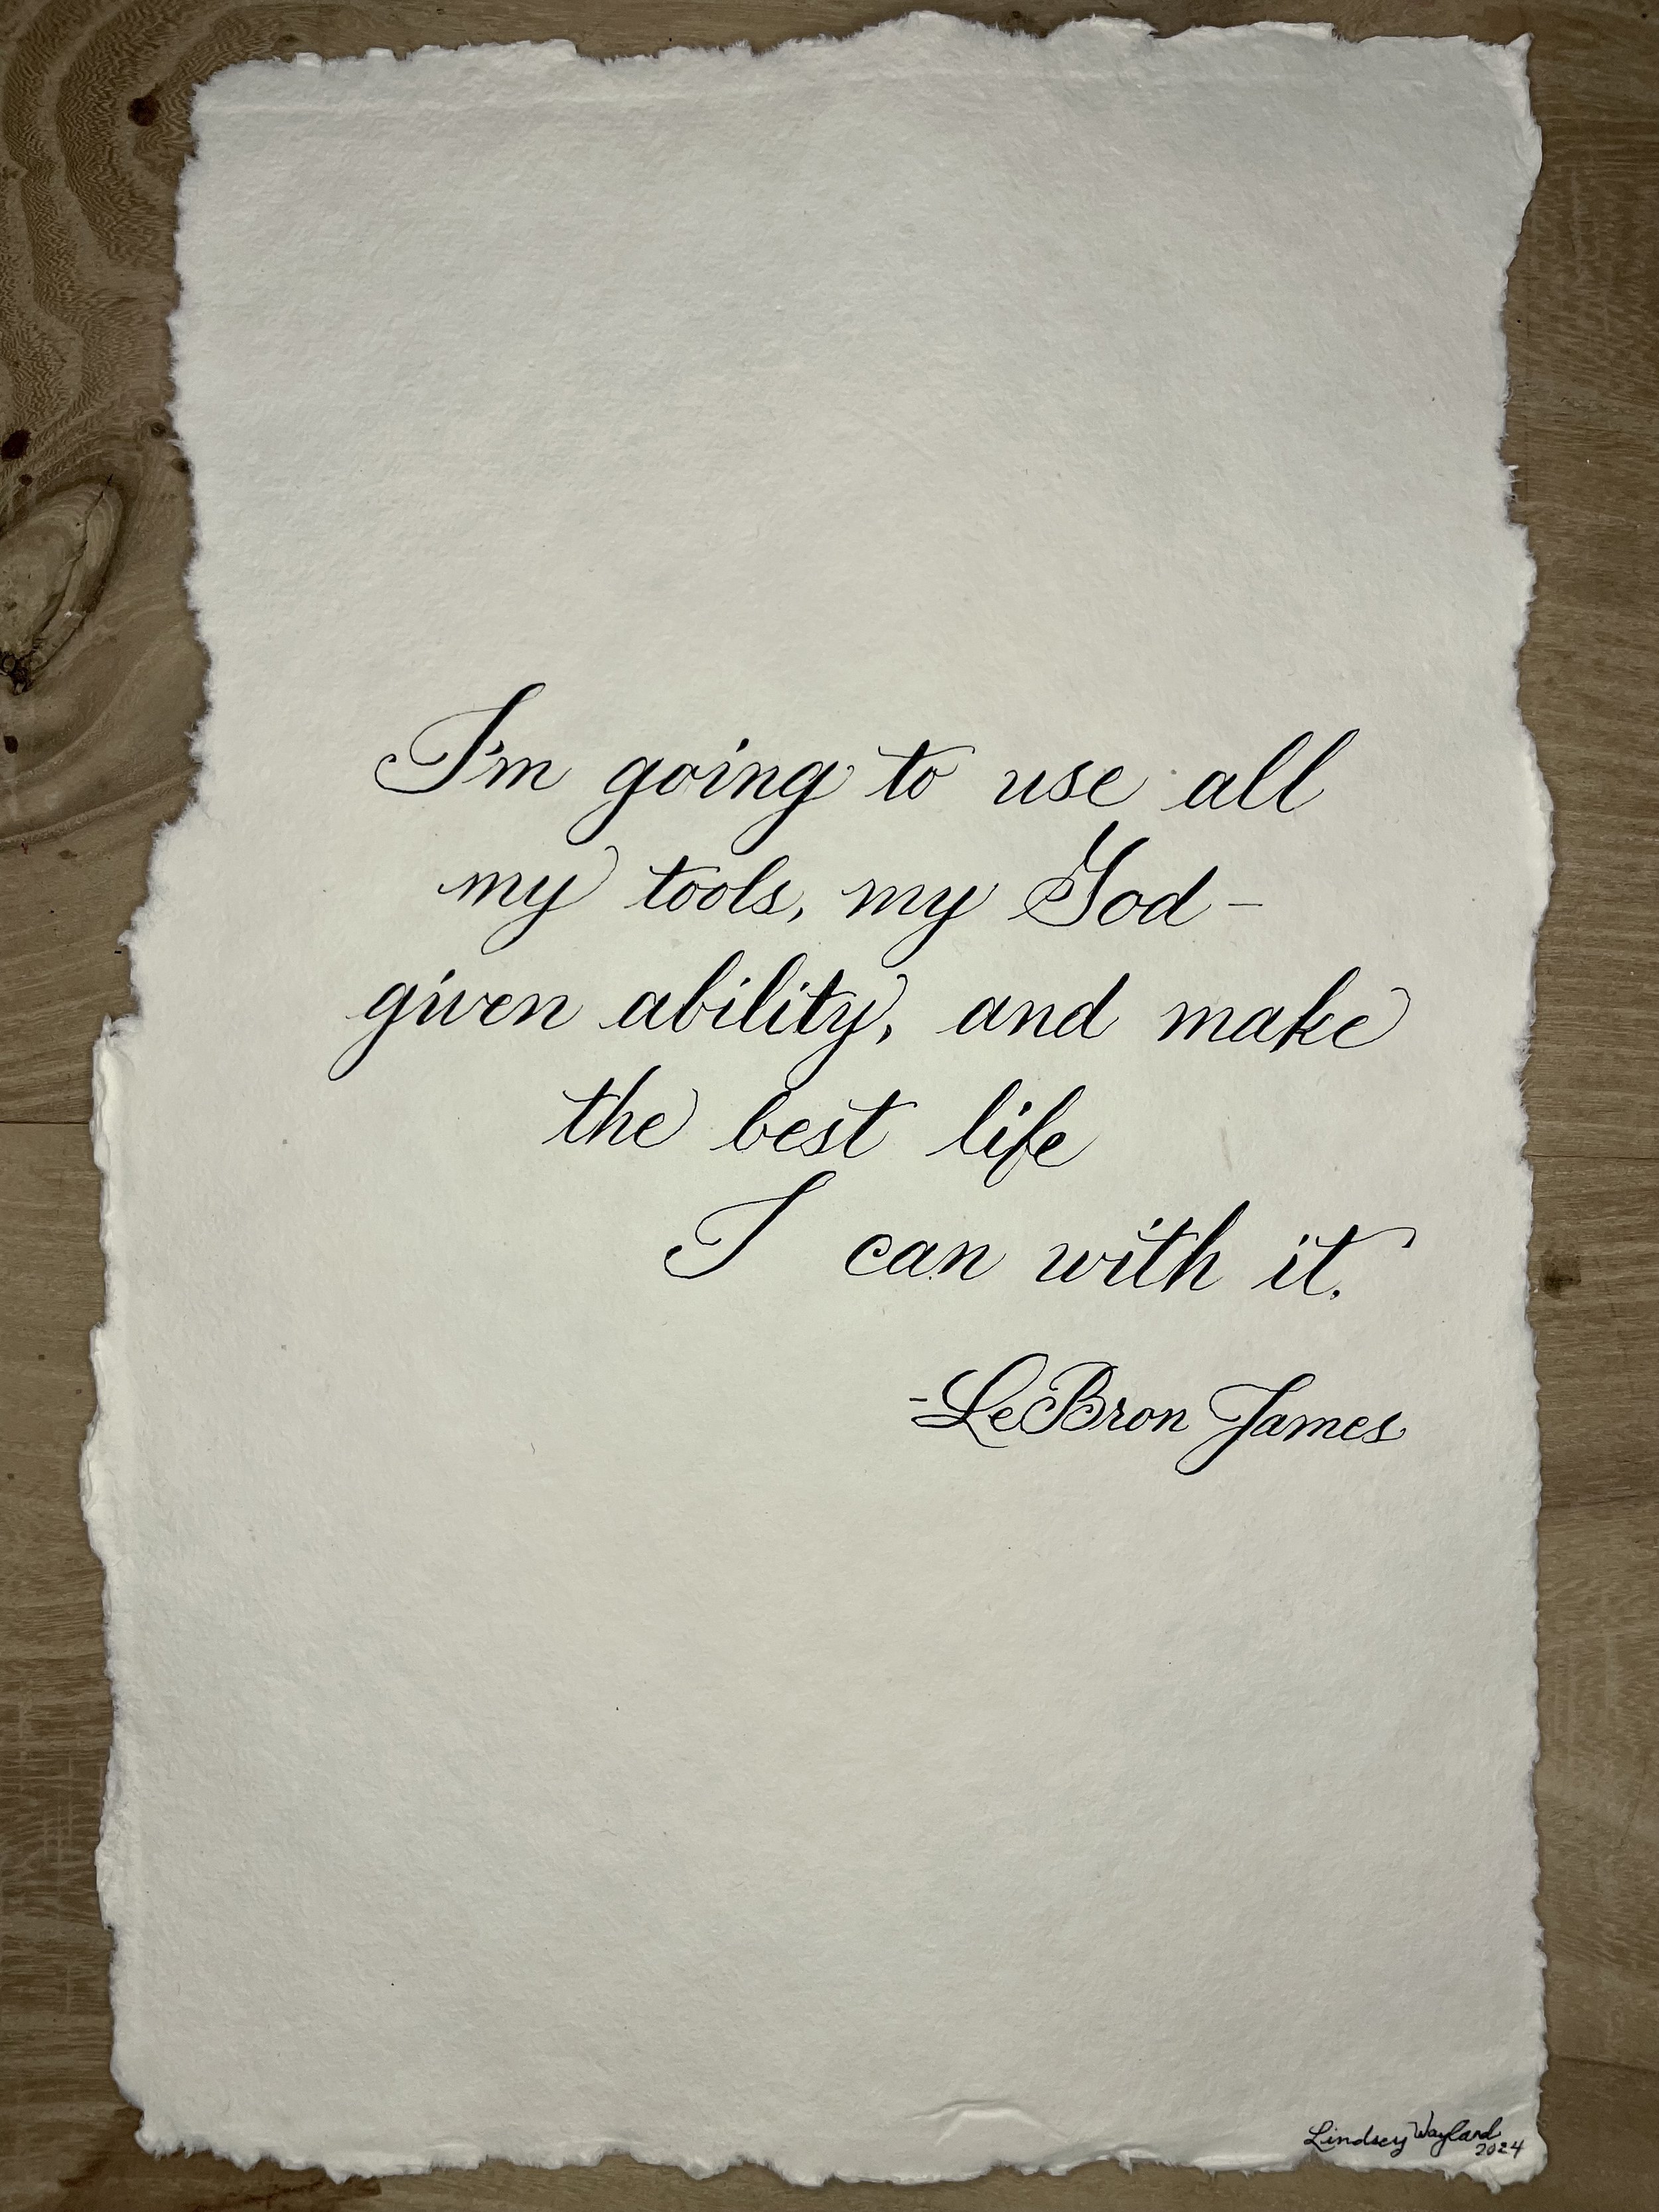 I'm going to use all
my tools, my God-
given ability, and make
the best life
I can with it.
-LeBron James
Lindsey Wayland
2024